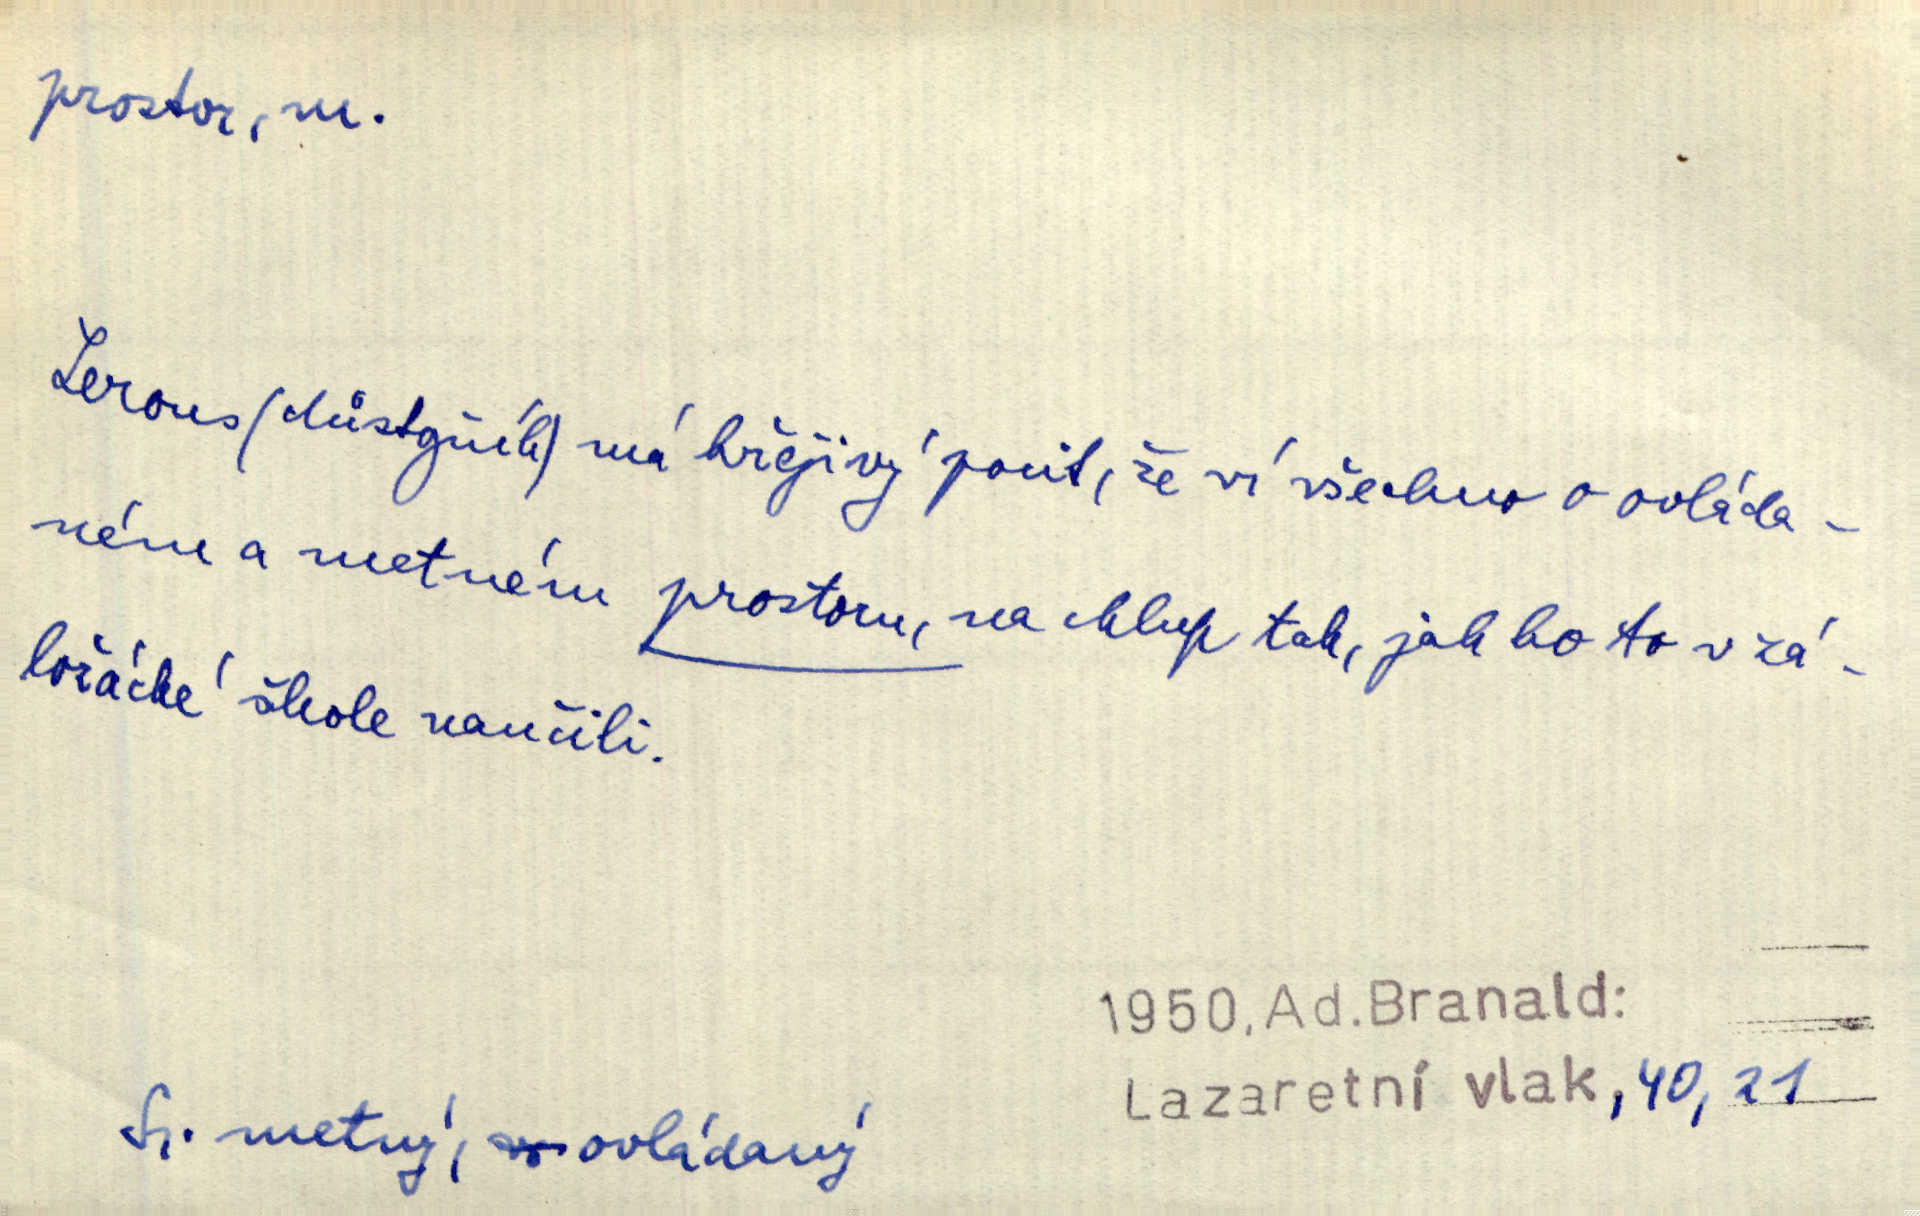 prostor, m.
Lerous (důstojník) má hřejivý pocit, že ví všechno o ovláda-
ném a metném prostoru, na chlup tak, jak ho to v zá-
ložácké škole naučili.
1950, Ad. Branald:
Lazaretní vlak, 40, 21
Sr. metný, ovládaný